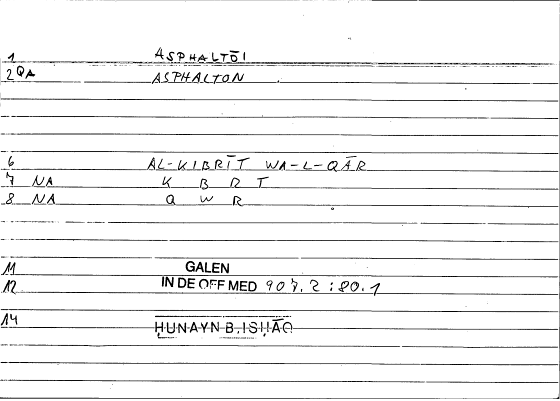 1 ASPHALTŌI
2 QA ASPHALTON
6 AL-KIBRĪT WA-L-QĀR
7 NA K B R T
8 NA Q W R
11 GALEN
12 IN DE OFF MED 907.2 : 80.1
14 ḤUNAYN B. ISḤĀQ